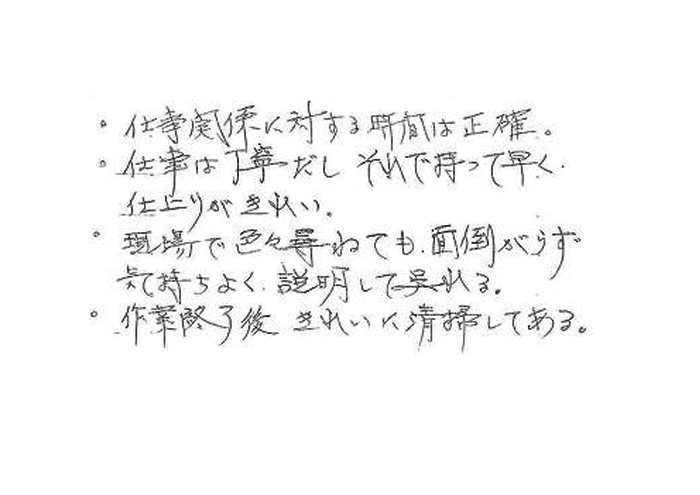 。仕事関係に対する時間は正確。
。仕事は丁寧だし それで持って早く.
仕上りがきれい。
。現場で色々尋ねても.面倒がらず
気持ちよく.説明して呉れる。
。作業終了後 きれいに清掃してある。